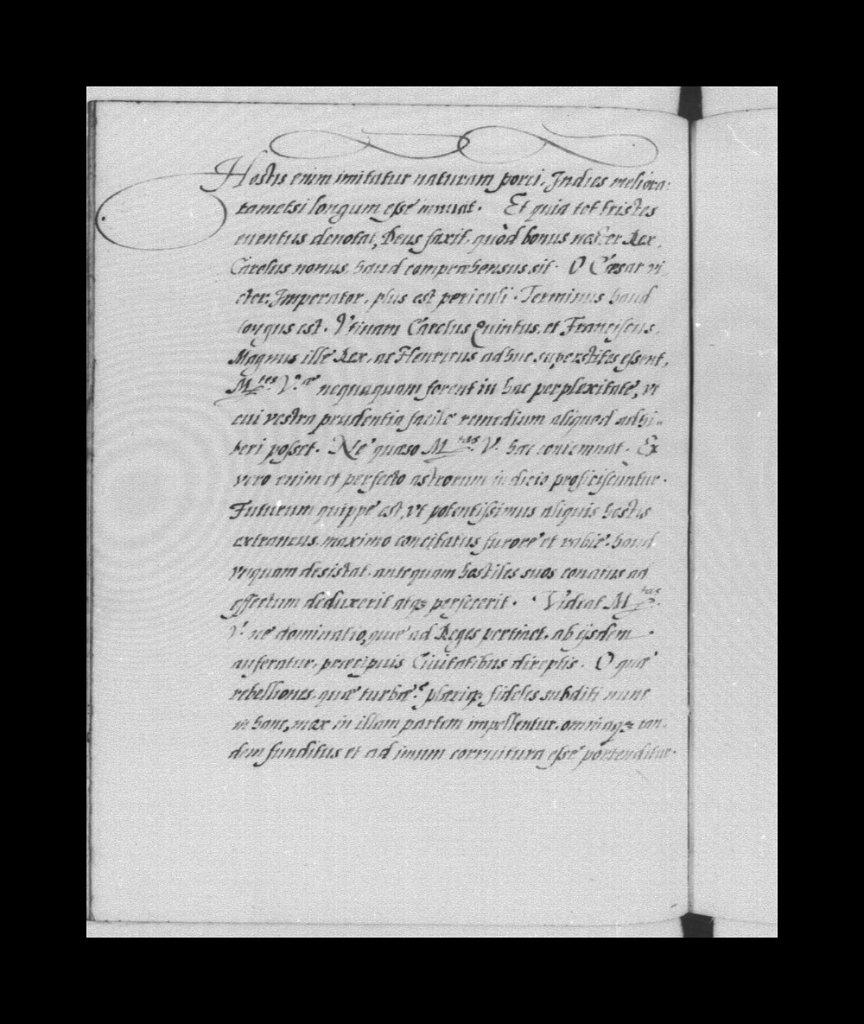 Hostis enim imitatur naturam porci. Indies meliora:
tametsi longum esse innuat. Et quia tot tristes
euentus denotat, Deus faxit, quòd bonus noster Rex,
Carolus nonus, haud compræhensus sit. O Cæsar vi
ctor, Imperator, plus est periculi. Terminus haud
longus est. Vtinam Carolus Quintus, et Franciscus,
Magnus ille Rex, ac Henricus adhuc superstites essent,
M.tes V.æ nequaquam forent in hac perplexitate, vt
cui vestra prudentia facile remedium aliquod adhi-
beri posset. Ne quæso M.tas V. hæc contemnat. Ex
vero enim et perfecto astrorum iudicio proficiscuntur.
Futurum quippe est, vt potentissimus aliquis hostis
extraneus, maximo concitatus furore et rabie, haud
vnquam desistat, antequam hostiles suos conatus ad
effectum deduxerit atq3 perfecerit. Videat M.tas
V. ne dominatio, quæ ad Reges pertinet, ab ijsdem
auferatur, præcipuis Ciuitatibus direptis. O quæ
rebelliones, quæ turbæ? pleriq3 fideles subditi nunc
in hanc, mox in illam partem impellentur, omniaq3 tan-
dem funditus et ad imum corruitura esse portenditur.